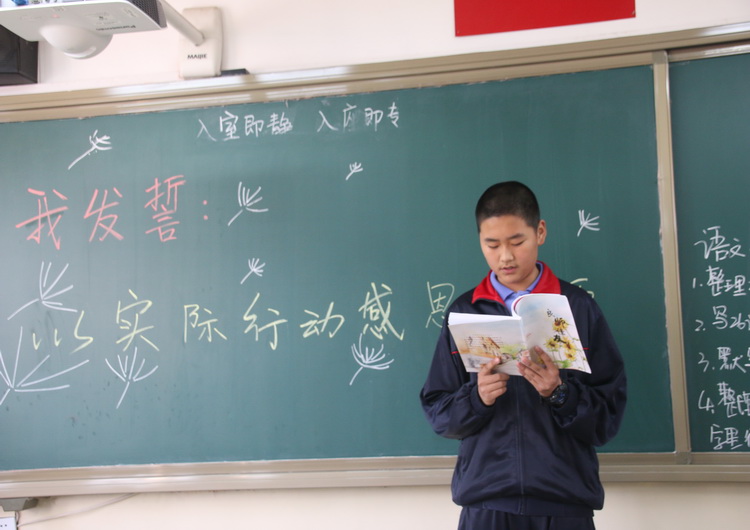 Panasonic
入室即静 入座即专
我发誓：
以实际行动感恩
语文
1.整理
2.写
3.默
4.整